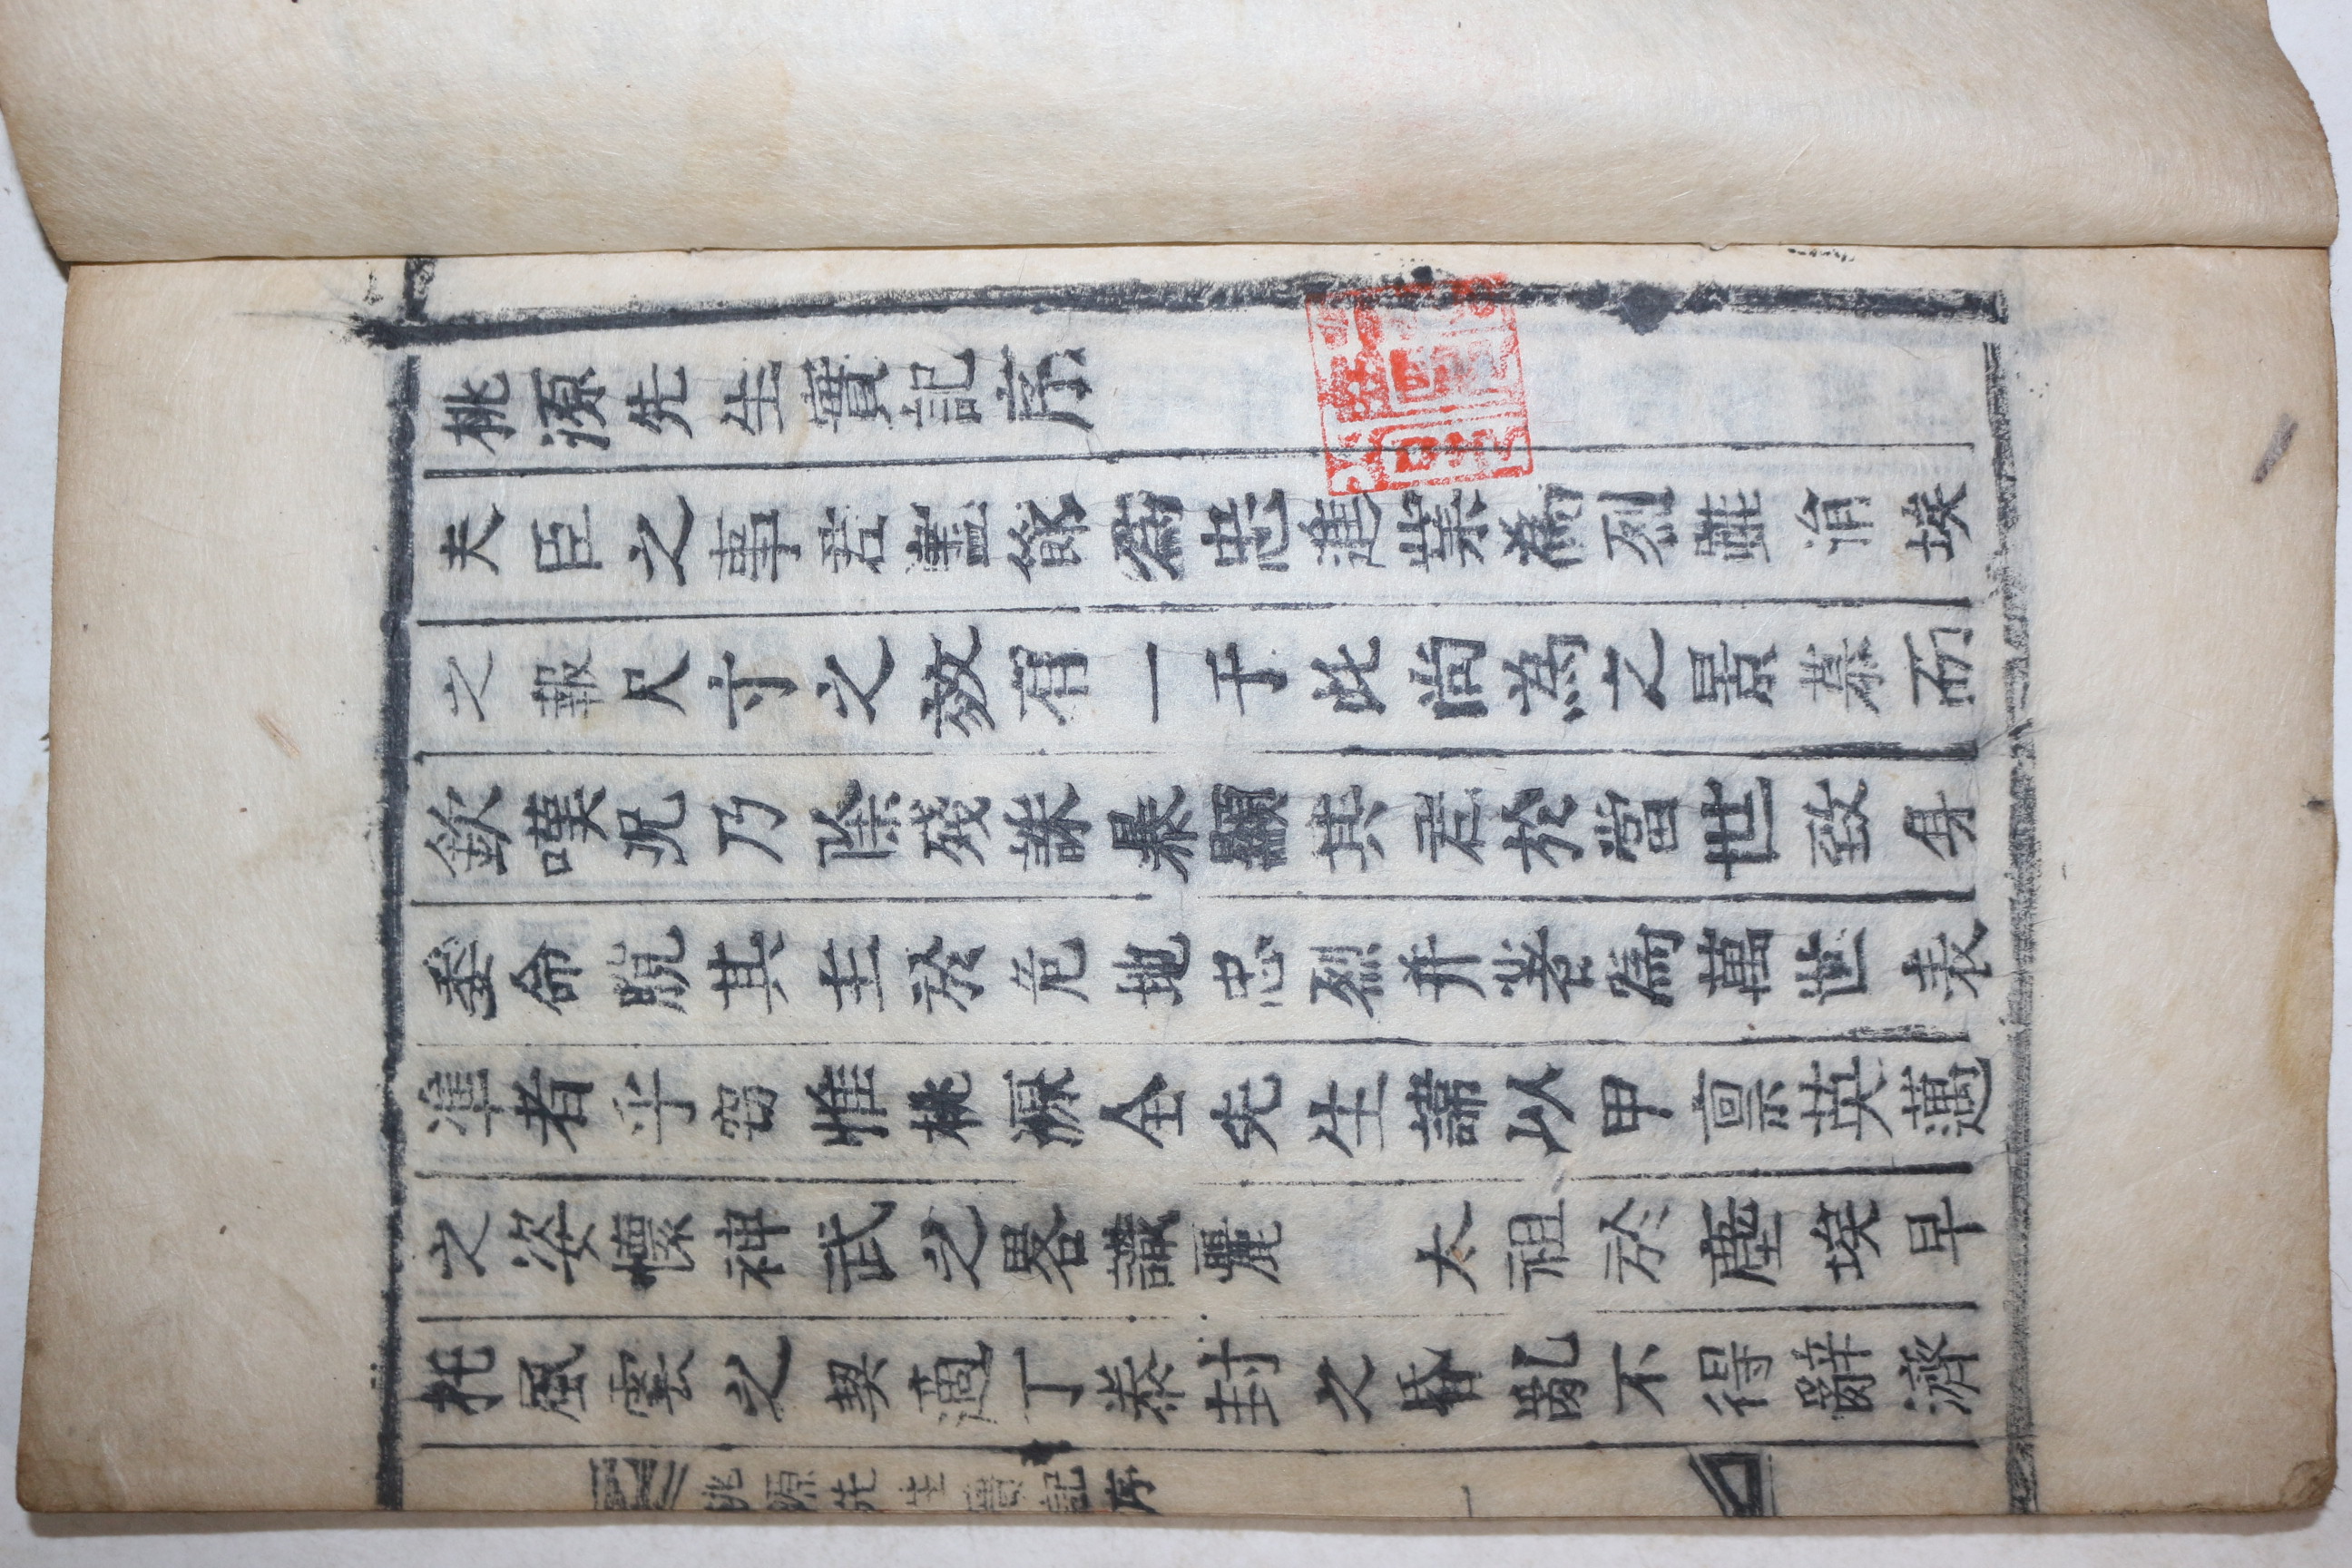 桃源先生實記序
夫臣之事君盡節爲忠進業爲烈雖涓埃
之報尺寸之效有一于此尙爲之景慕而
欽嘆况乃除殘誅暴顯其君於當世致身
委命脫其主於危地忠烈并著爲萬世表
準者乎窃惟桃源全先生諱以甲禀英邁
之姿懷神武之畧識麗 太祖於塵埃早
托風雲之契適丁泰封之昏亂不得辭濟
桃源先生實記序 一